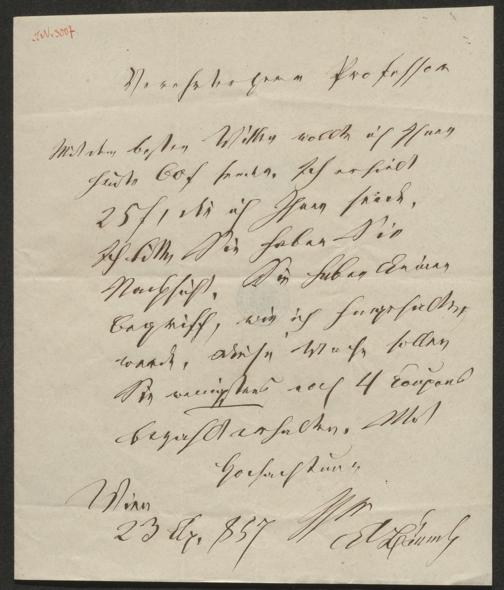 I.N. 3007
Verehrter Herr Professor
Mit dem besten Willen wollte ich Ihnen
heute 60f senden. Ich erhielt
25f, die ich Ihnen sende.
Ich bitte Sie haben Sie
Nachsicht. Sie haben keinen
Begriff, wie ich hingehalten
werde. Diese Woche sollen
Sie wenigstens noch 4 Coupons
bezahlt erhalten. Mit
Hochachtung
Wien
23 857 Ihr